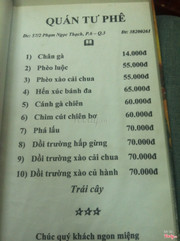 QUÁN TƯ PHÊ
Đc: 172 Phạm Ngọc Thạch, P.6 - Q.3
Đt: 38200263
1) Chân gà 14.000đ
2) Phèo luộc 55.000đ
3) Phèo xào cải chua 55.000đ
4) Hến xúc bánh đa 50.000đ
5) Cánh gà chiên 60.000đ
6) Chim cút chiên bơ 60.000đ
7) Phá lấu 70.000đ
8) Dồi trường hấp gừng 70.000đ
9) Dồi trường xào cải chua 70.000đ
10) Dồi trường xào củ hành 70.000đ
Trái cây
Chúc quý khách ngon miệng